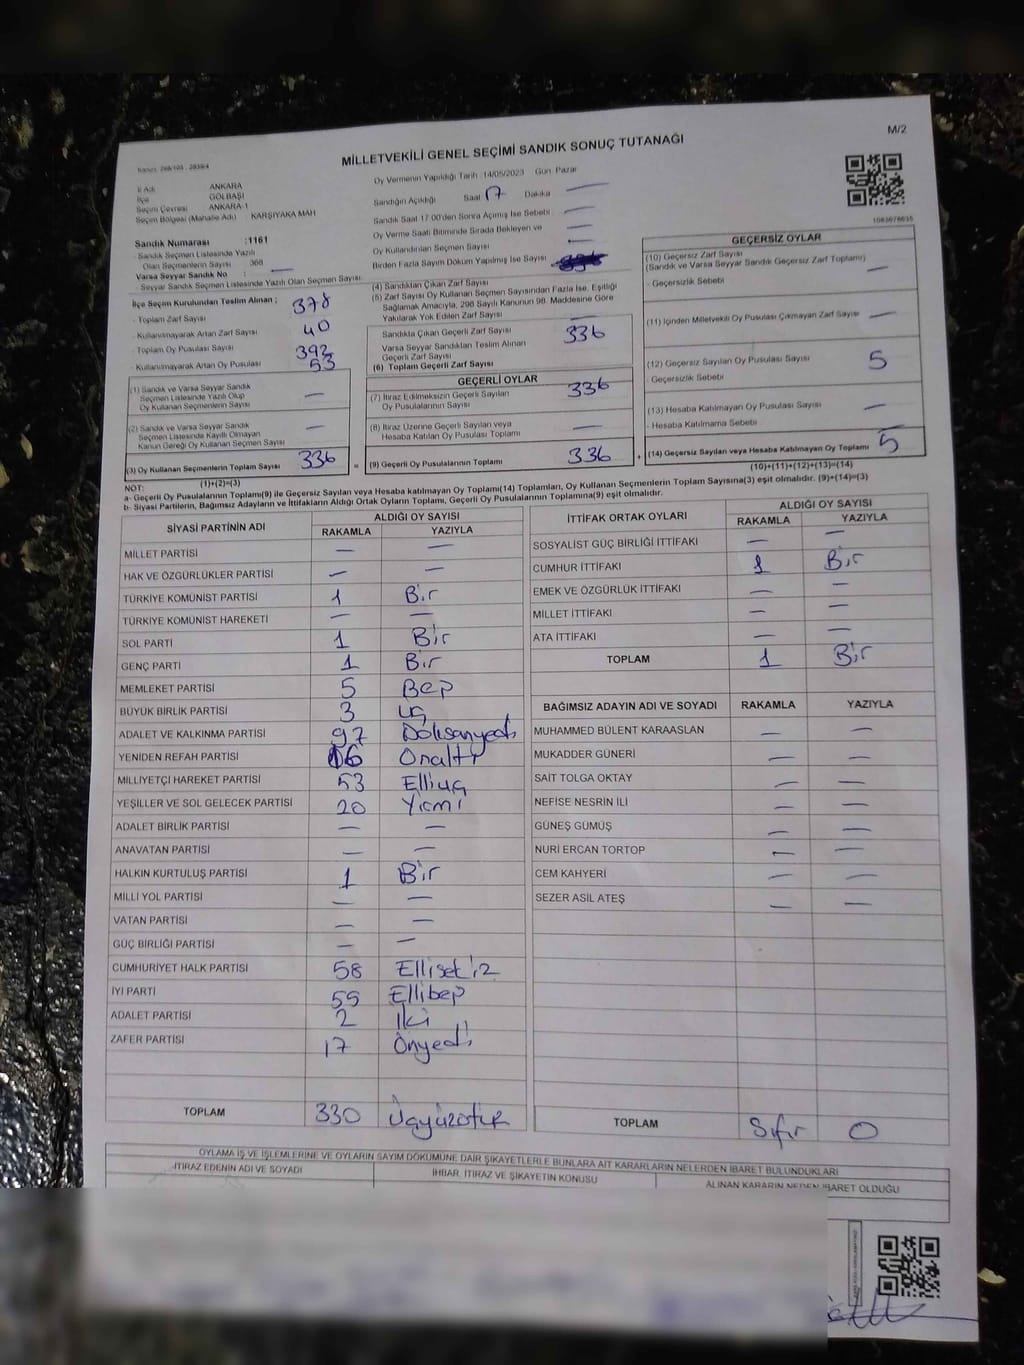 M/2
MİLLETVEKİLİ GENEL SEÇİMİ SANDIK SONUÇ TUTANAĞI
İl Adı ANKARA
İlçe GÖLBAŞI
Seçim Çevresi ANKARA-1
Seçim Bölgesi (Mahalle Adı) KARŞIYAKA MAH
Sandık Numarası :1161
Sandık Seçmen Listesinde Yazılı
Olan Seçmenlerin Sayısı 368
Varsa Seyyar Sandık No : —
Seyyar Sandık Seçmen Listesinde Yazılı Olan Seçmen Sayısı
İlçe Seçim Kurulundan Teslim Alınan :
- Toplam Zarf Sayısı 378
- Kullanılmayarak Artan Zarf Sayısı 40
- Toplam Oy Pusulası Sayısı 393
- Kullanılmayarak Artan Oy Pusulası 53
(1) Sandık ve Varsa Seyyar Sandık
Seçmen Listesinde Yazılı Olup
Oy Kullanan Seçmenlerin Sayısı —
(2) Sandık ve Varsa Seyyar Sandık
Seçmen Listesinde Kayıtlı Olmayan
Kanun Gereği Oy Kullanan Seçmen Sayısı —
(3) Oy Kullanan Seçmenlerin Toplam Sayısı 336
(1)+(2)=(3)
Oy Vermenin Yapıldığı Tarih 14/05/2023 Gün Pazar
Sandığın Açıldığı Saat 17 Dakika —
Sandık Saat 17.00'den Sonra Açılmış İse Sebebi —
Oy Verme Saati Bitiminde Sırada Bekleyen ve
Oy Kullandırılan Seçmen Sayısı —
Birden Fazla Sayım Döküm Yapılmış İse Sayısı
(4) Sandıktan Çıkan Zarf Sayısı
(5) Zarf Sayısı Oy Kullanan Seçmen Sayısından Fazla İse, Eşitliği
Sağlamak Amacıyla, 298 Sayılı Kanunun 98. Maddesine Göre
Yakılarak Yok Edilen Zarf Sayısı —
Sandıkta Çıkan Geçerli Zarf Sayısı 336
Varsa Seyyar Sandıktan Teslim Alınan
Geçerli Zarf Sayısı
(6) Toplam Geçerli Zarf Sayısı
GEÇERLİ OYLAR
(7) İtiraz Edilmeksizin Geçerli Sayılan
Oy Pusulalarının Sayısı 336
(8) İtiraz Üzerine Geçerli Sayılan veya
Hesaba Katılan Oy Pusulası Toplamı —
= (9) Geçerli Oy Pusulalarının Toplamı 336 +
1083676635
GEÇERSİZ OYLAR
(10) Geçersiz Zarf Sayısı
(Sandık ve Varsa Seyyar Sandık Geçersiz Zarf Toplamı) —
- Geçersizlik Sebebi
(11) İçinden Milletvekili Oy Pusulası Çıkmayan Zarf Sayısı —
(12) Geçersiz Sayılan Oy Pusulası Sayısı 5
- Geçersizlik Sebebi
(13) Hesaba Katılmayan Oy Pusulası Sayısı —
- Hesaba Katılmama Sebebi
(14) Geçersiz Sayılan veya Hesaba Katılmayan Oy Toplamı 5
(10)+(11)+(12)+(13)=(14)
NOT:
a- Geçerli Oy Pusulalarının Toplamı(9) ile Geçersiz Sayılan veya Hesaba katılmayan Oy Toplamı(14) Toplamları, Oy Kullanan Seçmenlerin Toplam Sayısına(3) eşit olmalıdır. (9)+(14)=(3)
b- Siyasi Partilerin, Bağımsız Adayların ve İttifakların Aldığı Ortak Oyların Toplamı, Geçerli Oy Pusulalarının Toplamına(9) eşit olmalıdır.
SİYASİ PARTİNİN ADI ALDIĞI OY SAYISI
RAKAMLA YAZIYLA
MİLLET PARTİSİ — —
HAK VE ÖZGÜRLÜKLER PARTİSİ — —
TÜRKİYE KOMÜNİST PARTİSİ 1 Bir
TÜRKİYE KOMÜNİST HAREKETİ — —
SOL PARTİ 1 Bir
GENÇ PARTİ 1 Bir
MEMLEKET PARTİSİ 5 Beş
BÜYÜK BİRLİK PARTİSİ 3 üç
ADALET VE KALKINMA PARTİSİ 97 Doksanyedi
YENİDEN REFAH PARTİSİ 16 Onaltı
MİLLİYETÇİ HAREKET PARTİSİ 53 Elliüç
YEŞİLLER VE SOL GELECEK PARTİSİ 20 Yirmi
ADALET BİRLİK PARTİSİ — —
ANAVATAN PARTİSİ — —
HALKIN KURTULUŞ PARTİSİ 1 Bir
MİLLİ YOL PARTİSİ — —
VATAN PARTİSİ — —
GÜÇ BİRLİĞİ PARTİSİ — —
CUMHURİYET HALK PARTİSİ 58 Ellisekiz
İYİ PARTİ 55 Ellibeş
ADALET PARTİSİ 2 İki
ZAFER PARTİSİ 17 Onyedi
TOPLAM 330 Üçyüzotuz
İTTİFAK ORTAK OYLARI ALDIĞI OY SAYISI
RAKAMLA YAZIYLA
SOSYALİST GÜÇ BİRLİĞİ İTTİFAKI — —
CUMHUR İTTİFAKI 1 Bir
EMEK VE ÖZGÜRLÜK İTTİFAKI — —
MİLLET İTTİFAKI — —
ATA İTTİFAKI — —
TOPLAM 1 Bir
BAĞIMSIZ ADAYIN ADI VE SOYADI RAKAMLA YAZIYLA
MUHAMMED BÜLENT KARAASLAN — —
MUKADDER GÜNERİ — —
SAİT TOLGA OKTAY — —
NEFİSE NESRİN İLİ — —
GÜNEŞ GÜMÜŞ — —
NURİ ERCAN TORTOP — —
CEM KAHYERİ — —
SEZER ASİL ATEŞ — —
TOPLAM Sıfır 0
OYLAMA İŞ VE İŞLEMLERİNE VE OYLARIN SAYIM DÖKÜMÜNE DAİR ŞİKAYETLERLE BUNLARA AİT KARARLARIN NELERDEN İBARET BULUNDUKLARI
İTİRAZ EDENİN ADI VE SOYADI İHBAR, İTİRAZ VE ŞİKAYETİN KONUSU ALINAN KARARIN NEDEN İBARET OLDUĞU